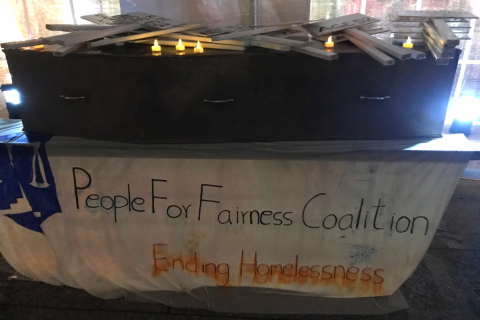 People For Fairness Coalition
Ending Homelessness